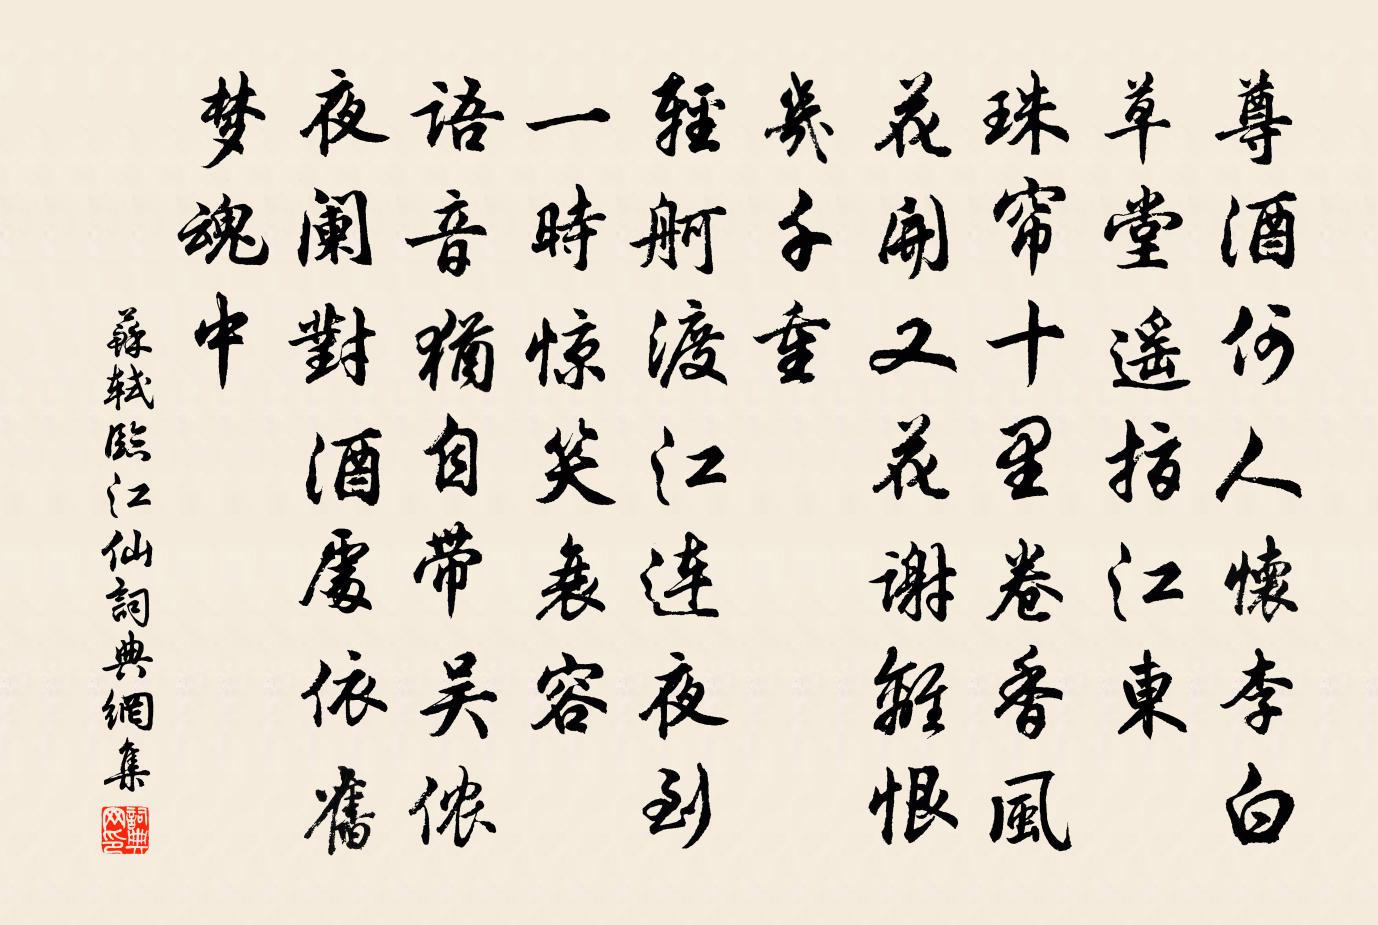 尊酒何人懷李白
草堂遥指江東
珠帘十里卷香風
花開又花謝離恨
幾千重
輕舸渡江連夜到
一時惊笑衰容
語音猶自帶吴侬
夜阑對酒處依舊
梦魂中
蘇軾臨江仙詞典網集
詞典
网印